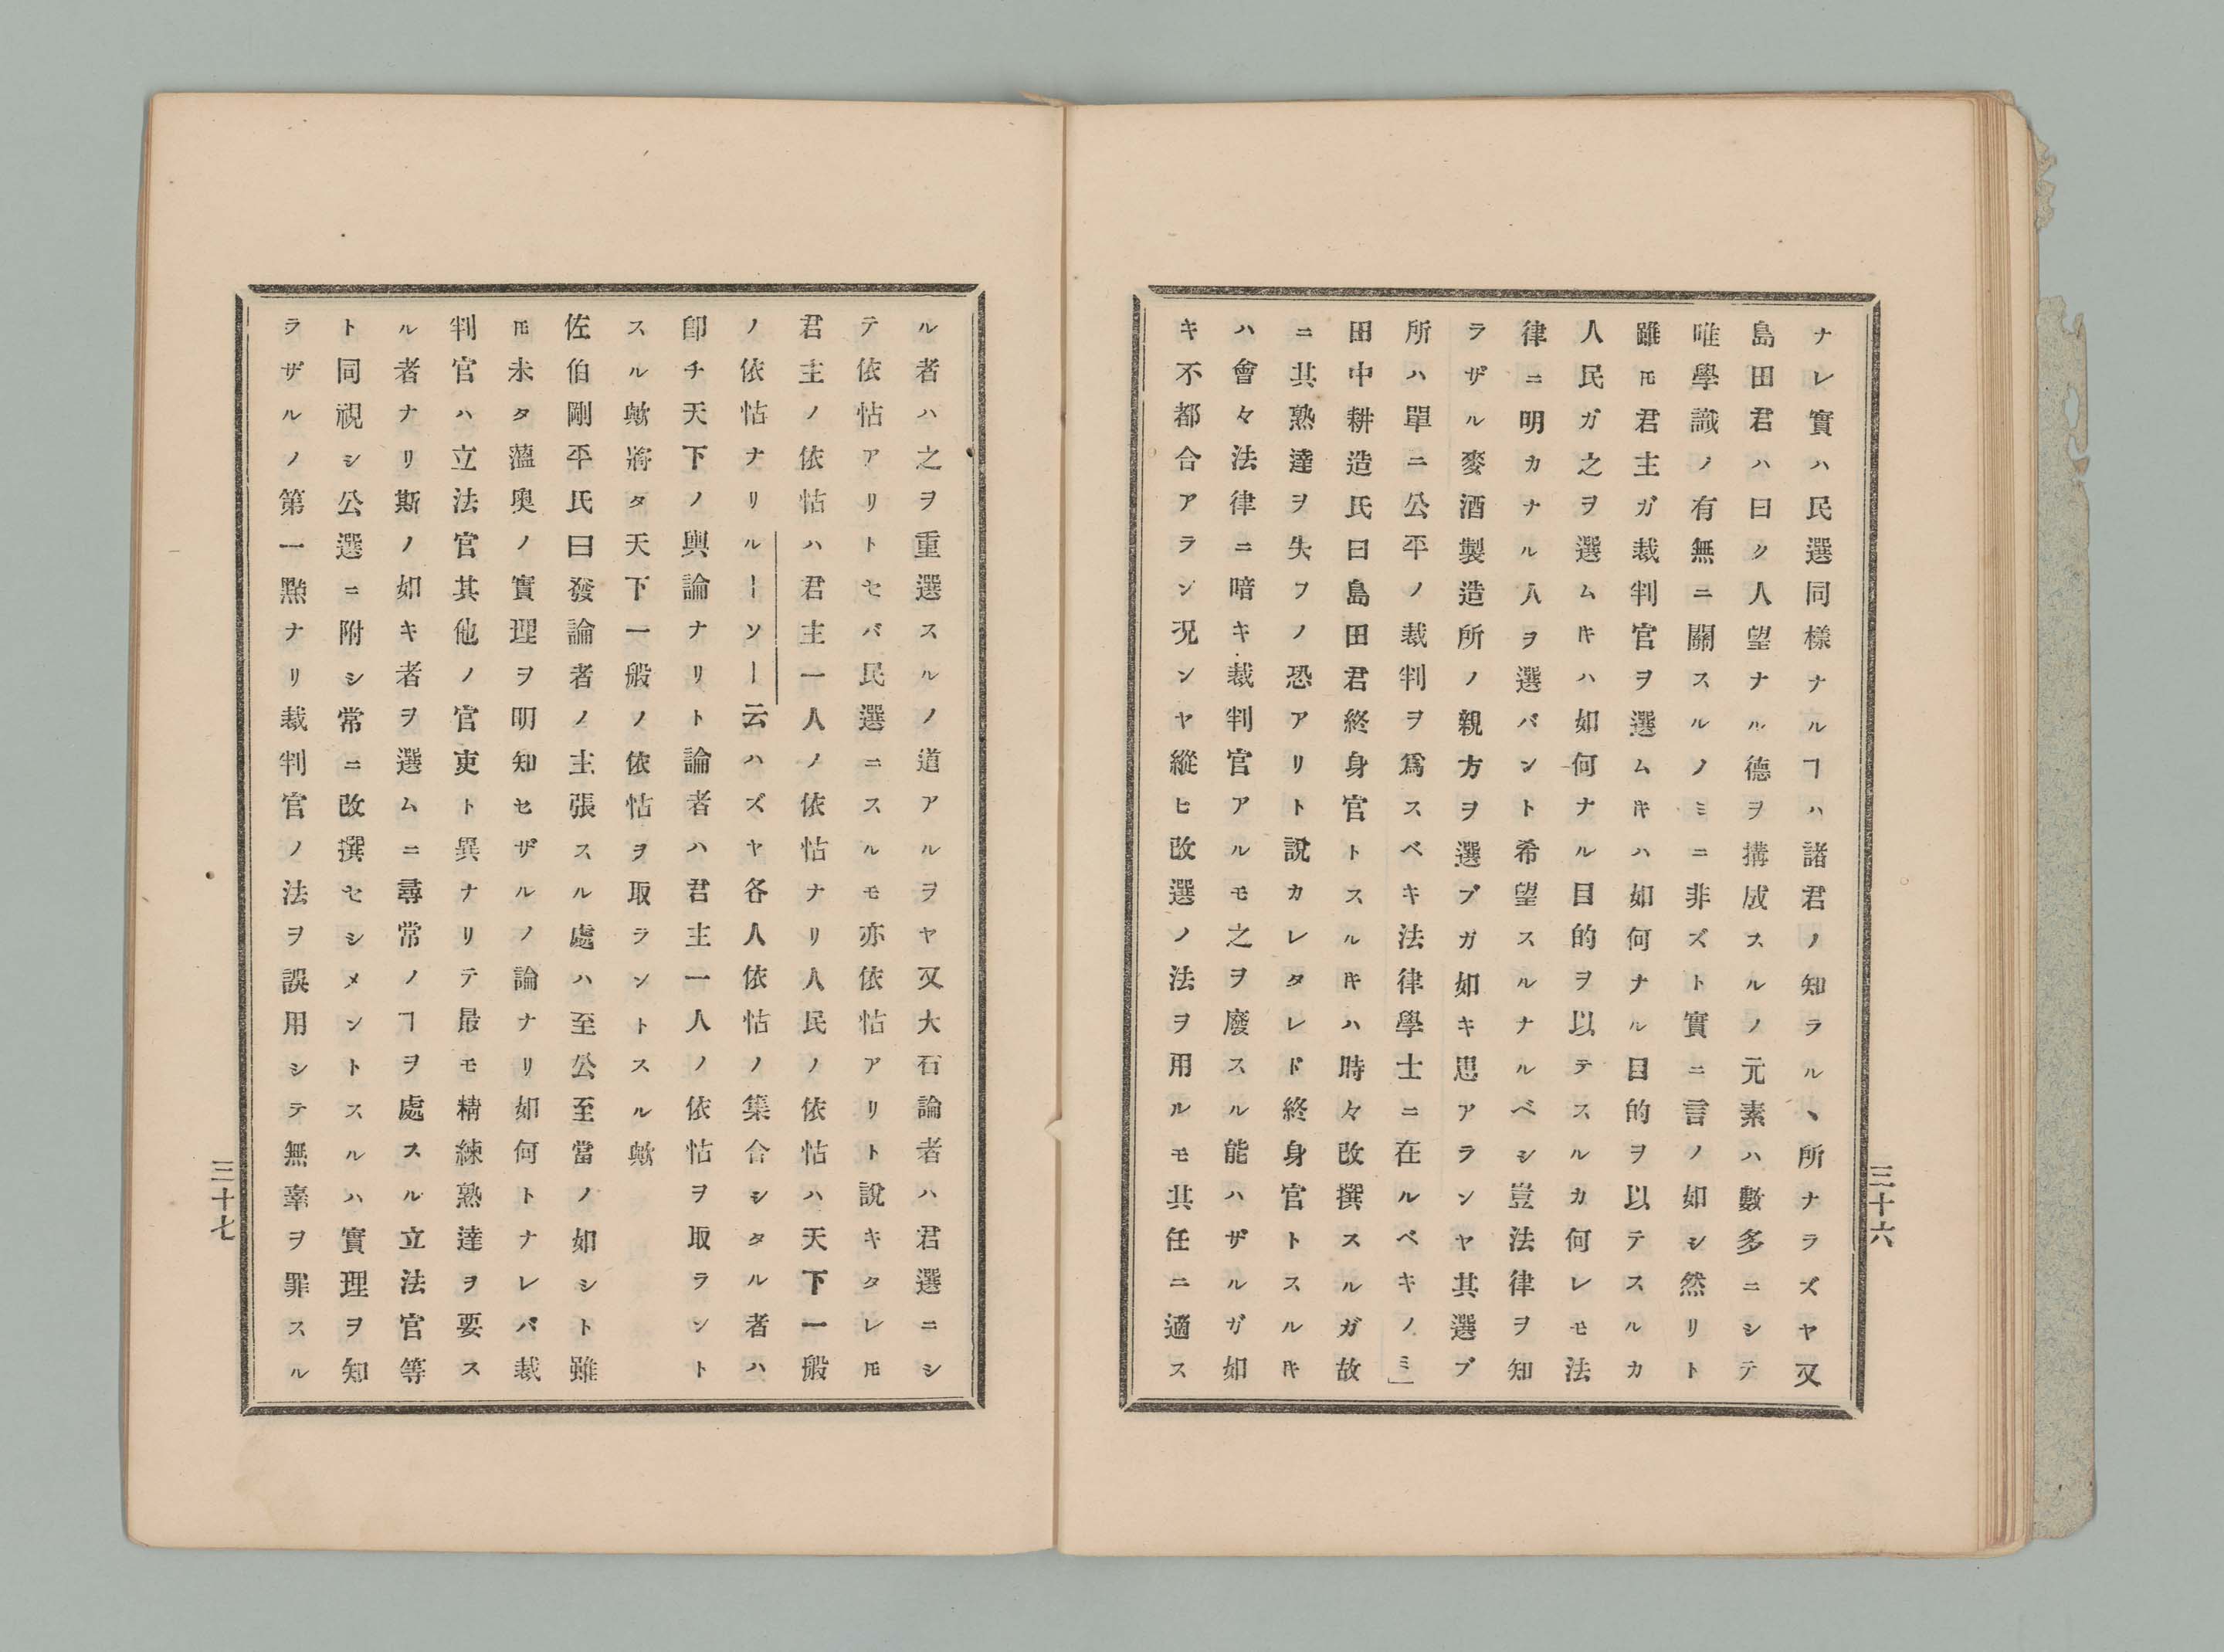 ナレ實ハ民選同樣ナルヿハ諸君ノ知ラルヽ所ナラズヤ又
島田君ハ曰ク人望ナル德ヲ搆成スルノ元素ハ數多ニシテ
唯學識ノ有無ニ關スルノミニ非ズト實ニ言ノ如シ然リト
雖𪜈君主ガ裁判官ヲ選ムキハ如何ナル目的ヲ以テスルカ
人民ガ之ヲ選ムキハ如何ナル目的ヲ以テスルカ何レモ法
律ニ明カナル人ヲ選バント希望スルナルベシ豈法律ヲ知
ラザル麥酒製造所ノ親方ヲ選ブガ如キ思アランヤ其選ブ
所ハ單ニ公平ノ裁判ヲ爲スベキ法律學士ニ在ルベキノミ」
田中耕造氏曰島田君終身官トスルキハ時々改撰スルガ故
ニ其熟達ヲ失フノ恐アリト說カレタレド終身官トスルキ
ハ會々法律ニ暗キ裁判官アルモ之ヲ廢スル能ハザルガ如
キ不都合アラン况ンヤ縱ヒ改選ノ法ヲ用ルモ其任ニ適ス
三十六
ル者ハ之ヲ重選スルノ道アルヲヤ又大石論者ハ君選ニシ
テ依怙アリトセバ民選ニスルモ亦依怙アリト說キタレ𪜈
君主ノ依怙ハ君主一人ノ依怙ナリ人民ノ依怙ハ天下一般
ノ依怙ナリルーソー云ハズヤ各人依怙ノ集合シタル者ハ
卽チ天下ノ輿論ナリト論者ハ君主一人ノ依怙ヲ取ラント
スル歟將タ天下一般ノ依怙ヲ取ラントスル歟
佐伯剛平氏曰發論者ノ主張スル處ハ至公至當ノ如シト雖
𪜈未タ薀奥ノ實理ヲ明知セザルノ論ナリ如何トナレバ裁
判官ハ立法官其他ノ官吏ト異ナリテ最モ精練熟達ヲ要ス
ル者ナリ斯ノ如キ者ヲ選ムニ尋常ノヿヲ處スル立法官等
ト同視シ公選ニ附シ常ニ改撰セシメントスルハ實理ヲ知
ラザルノ第一點ナリ裁判官ノ法ヲ誤用シテ無辜ヲ罪スル
三十七